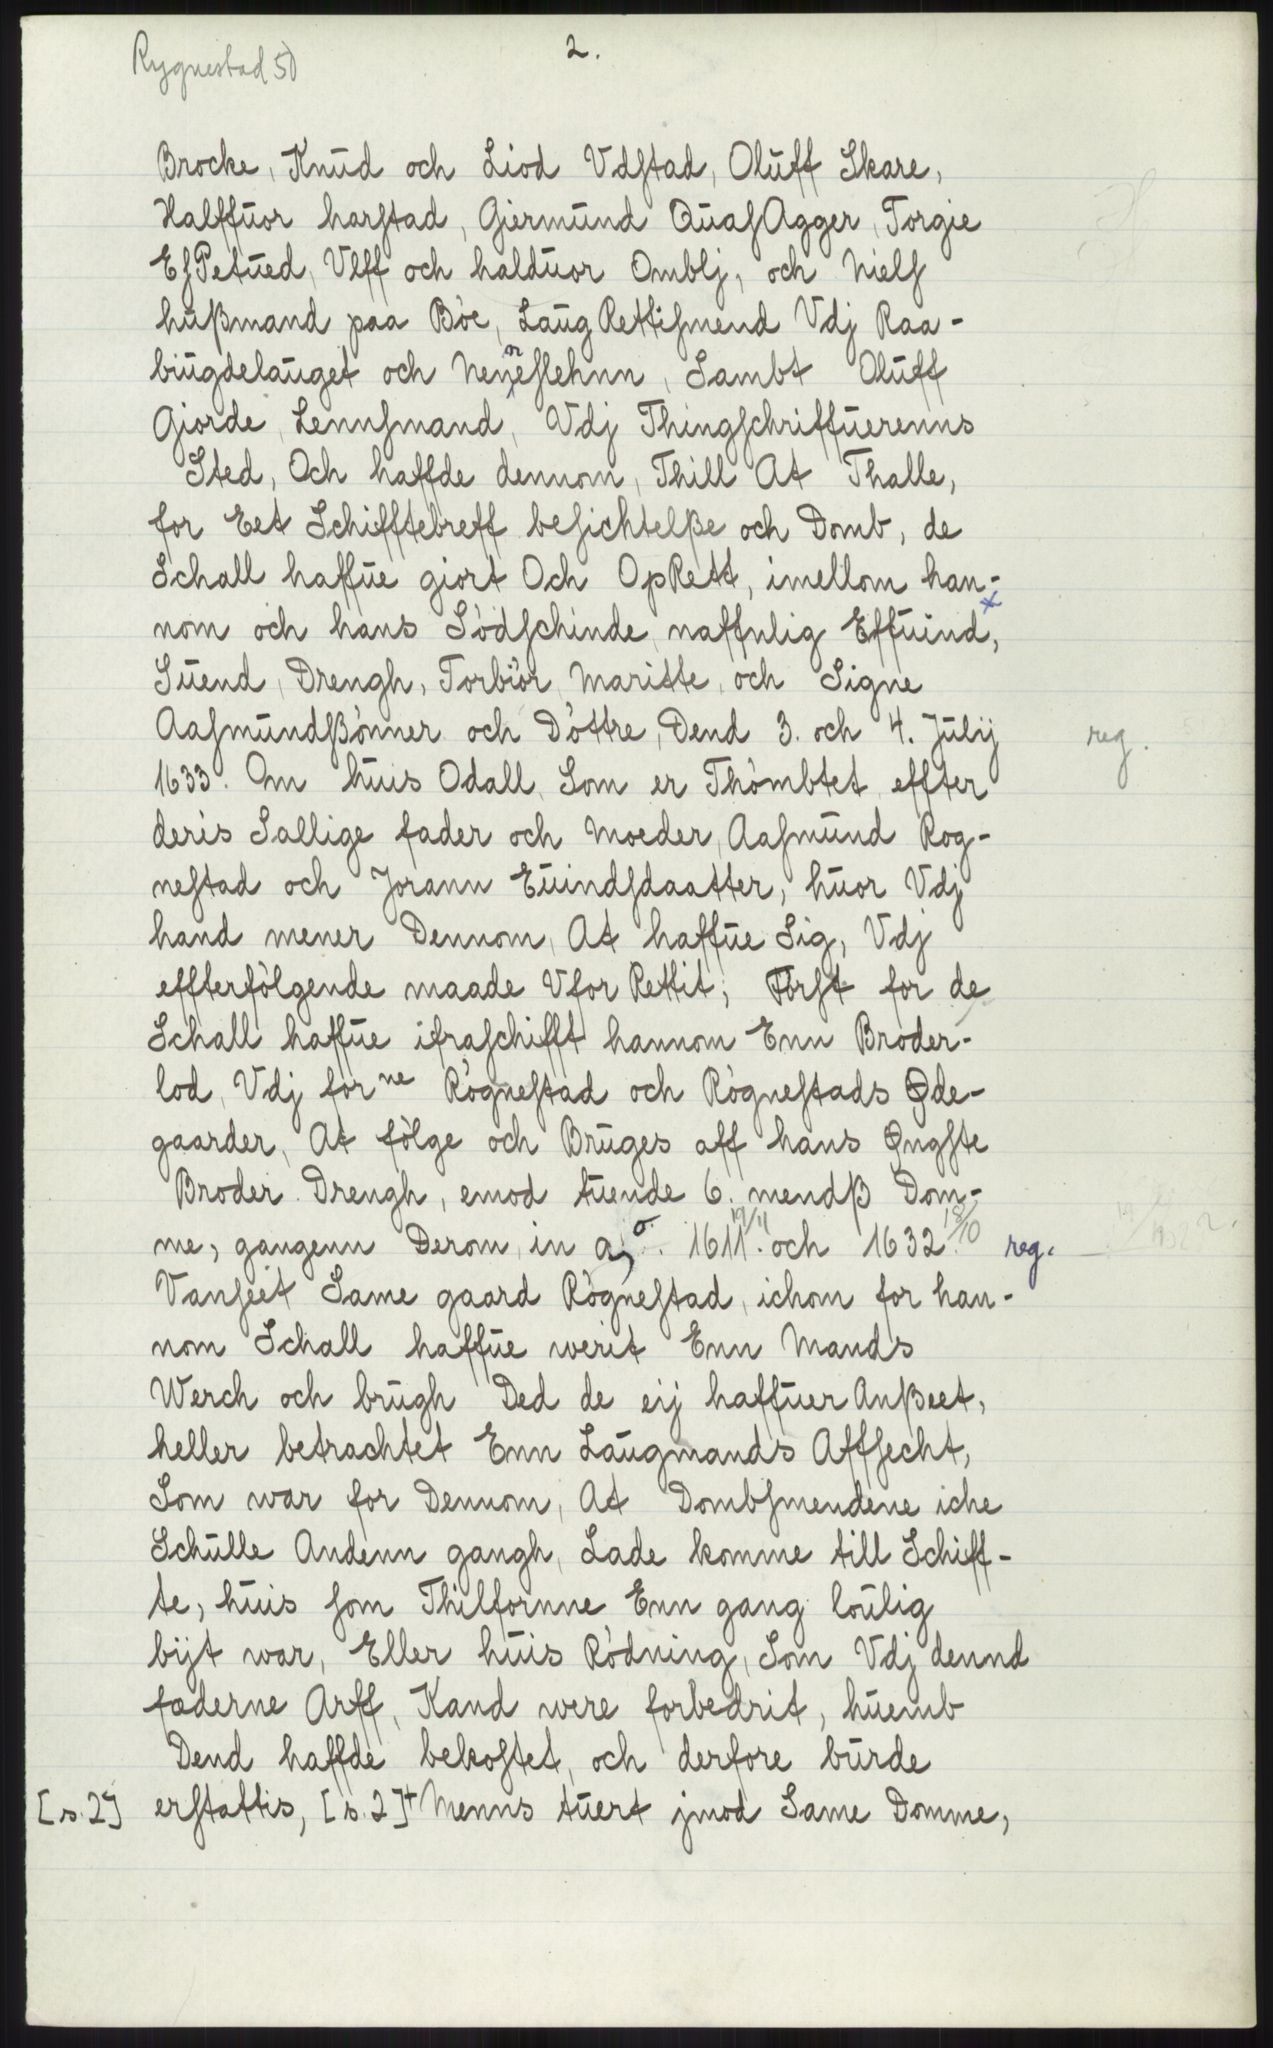 Rygnestad 50
2.
Brocke, Knud och Liod Vdstad, Oluff Skare,
Halffuor harstad, Giermund QuasAgger, Torgie
EsPetued, Vlff och halduor Omblj, och Niels
hußmand paa Böe, LaugRettismend Vdj Raa-
biugdelauget och Nenneslehnn, Sambt Oluff
Giorde, Lennsmand, Vdj Thingschriffuerenns
Sted, Och haffde dennom, Thill At Thalle,
for Eet Schifftebreff besichtelße och Domb, de
Schall haffue giort Och OpRett, imellom han-
nom och hans Södschinde, naffnlig Effuind,
Suend, Drengh, Torbiör, Maritte, och Signe
Aasmundßönner och Döttre, Dend 3. och 4. Julij
reg.
1633. Om huis Odall, Som er Thömbtet effter
deris Sallige fader och Moeder, Aasmund Rog-
nestad och Jorann Euindsdaatter, huor Vdj
hand mener Dennom, At haffue Sig, Vdj
effterfölgende maade Vfor Rettit, Först for de
Schall haffue ifraschifft hannom Enn Broder-
lod, Vdj for ne Rögnestad och Rögnestads Øde-
gaarder, At fölge och Bruges aff hans Øngste
Broder Drengh, emod tuende 6. mendß Dom-
me, gangenn Derom, in ao. 1611 19/11. och 1632 18/10 reg.
Vanseet Same gaard Rögnestad, ichom for han-
nom Schall haffue werit Enn Mands
Werch och brugh Ded de eij haffuer Anßeet,
heller betrachtet Enn Laugmands Affsecht,
Som war for Dennom, At Dombsmendene iche
Schulle Andenn gangh, Lade komme till Schiff-
te, huis som Thilfornne Enn gang loulig
bijt war, Eller huis Rödning, Som Vdj dennd
fæderne Arff, Kand were forbedrit, huemb
Dend haffde bekostet, och derfore burde
[s. 2] erstattis, [s. 2]+ Menns tuert jmod Same Domme,